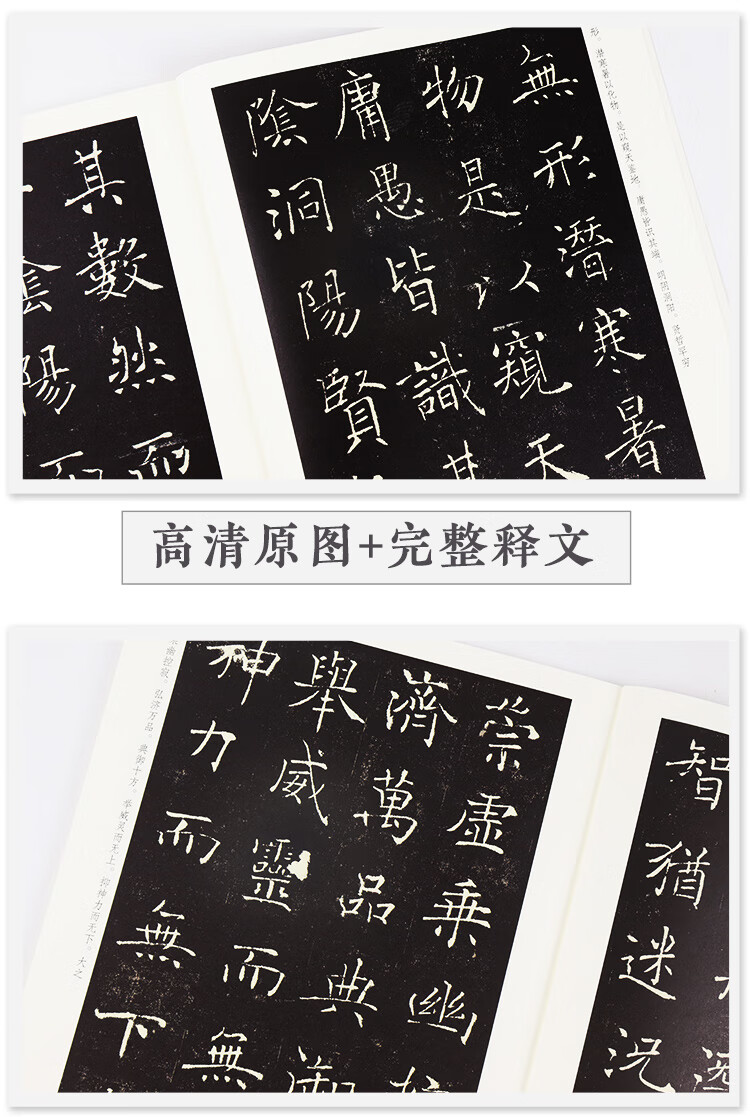 形。潜寒暑以化物。是以窥天鉴地。庸愚皆识其端。明阴洞阳。贤哲罕穷
無形潛寒暑
物是以窺天
庸愚皆識其
陰洞陽賢
其數然而
陰陽而
高清原图+完整释文
智猶迷況
崇虛乘幽
濟萬品典御
舉威靈而無
神力而無下
幽控寂。弘济万品。典御十方。举威灵而无上。抑神力而无下。大之